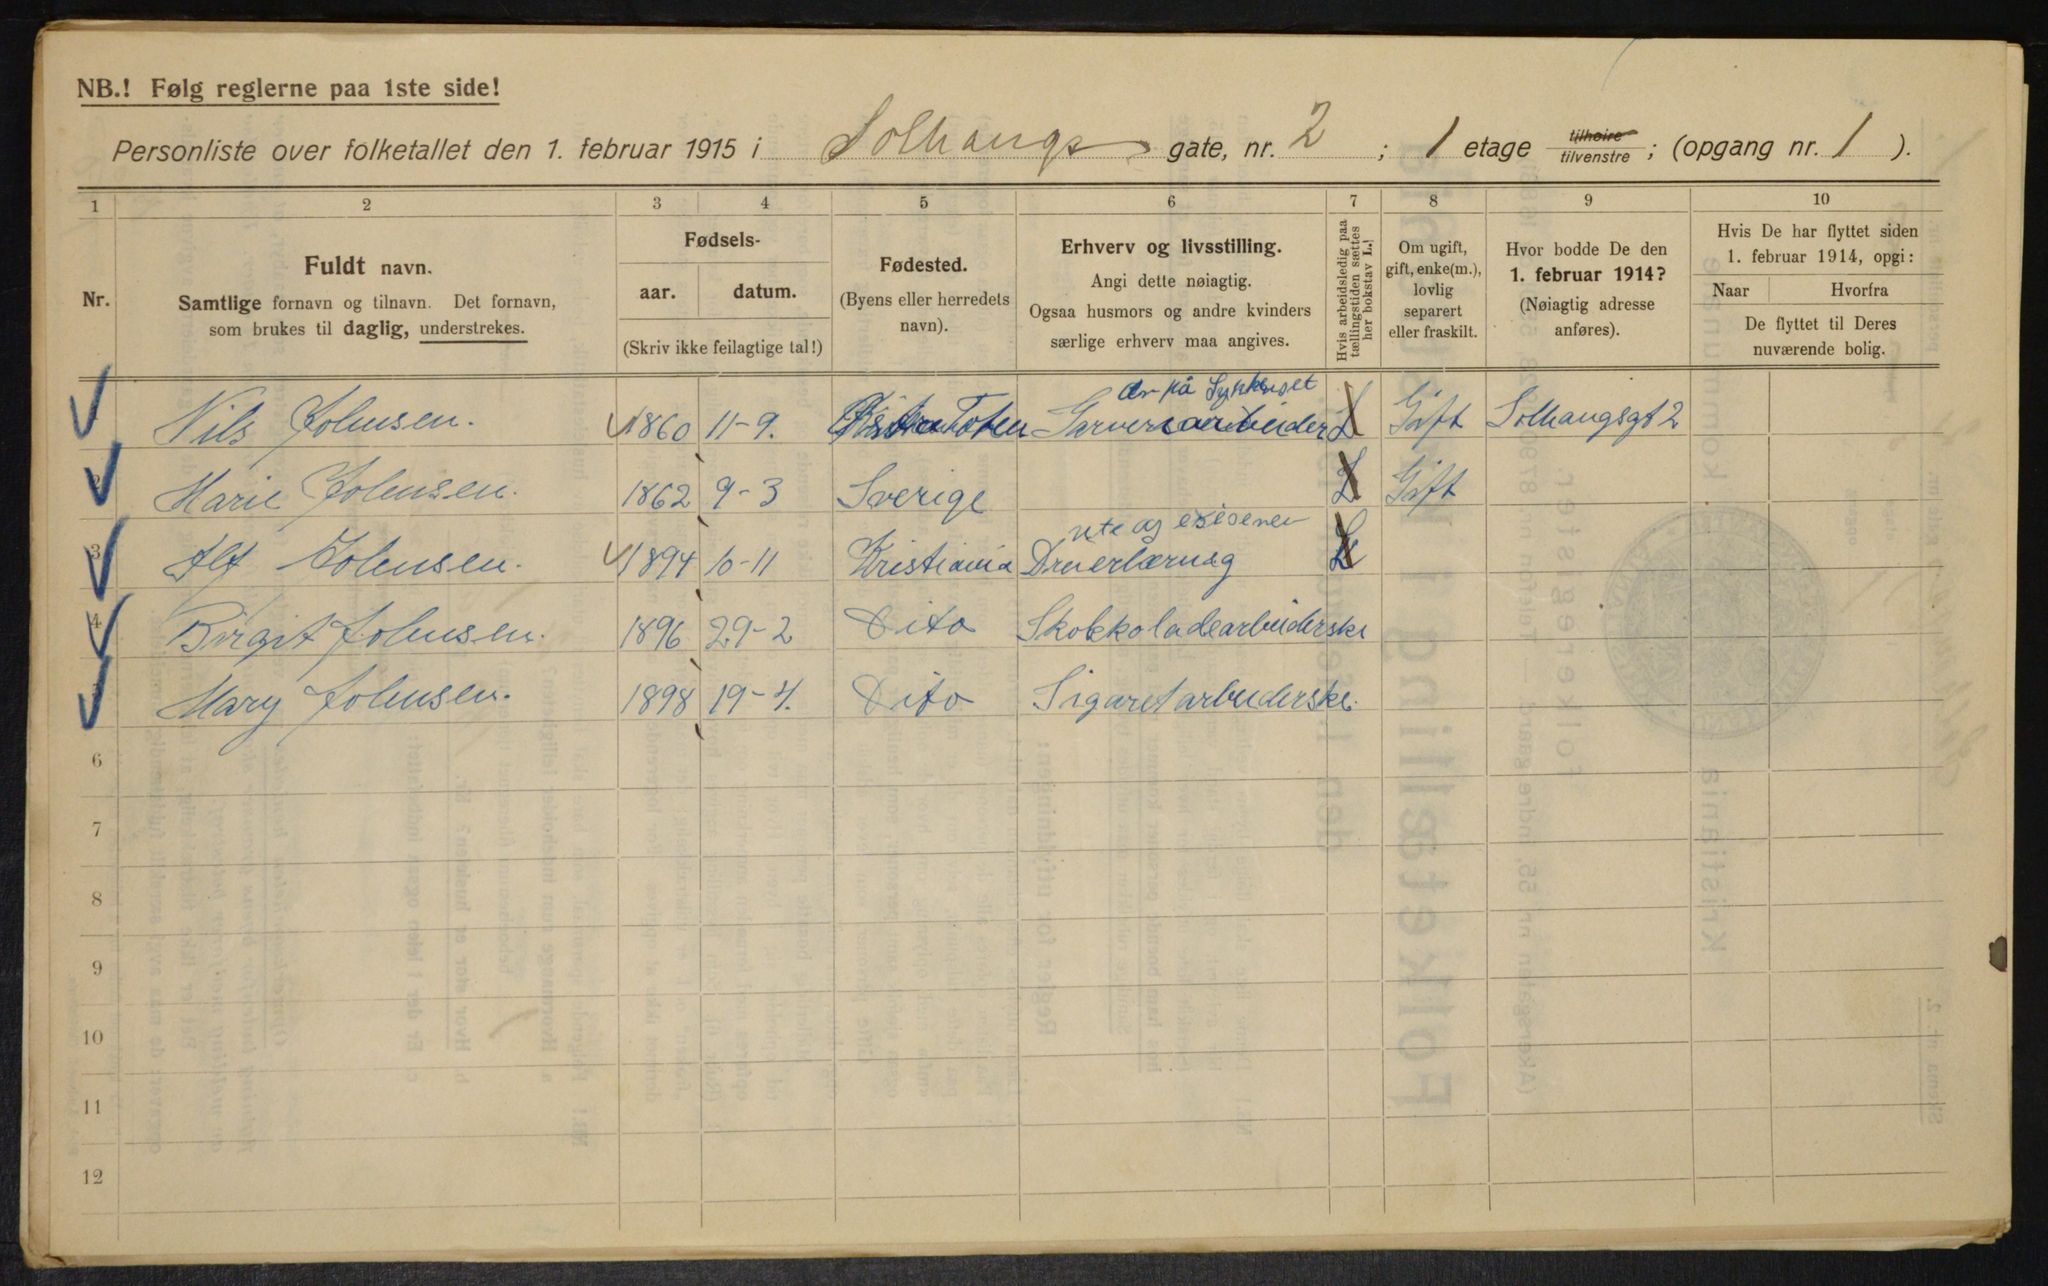 NB.! Følg reglerne paa 1ste side!
Personliste over folketallet den 1. februar 1915 i Solhaugs gate, nr. 2 ; 1 etage tilhøire tilvenstre ; (opgang nr. 1 ).
1 2 3 4 5 6 7 8 9 10
Nr.
Fuldt navn.
Samtlige fornavn og tilnavn. Det fornavn,
som brukes til daglig, understrekes.
Fødsels-
aar. datum.
(Skriv ikke feilagtige tal!)
Fødested.
(Byens eller herredets
navn).
Erhverv og livsstilling.
Angi dette nøiagtig.
Ogsaa husmors og andre kvinders
særlige erhverv maa angives.
Hvis arbeidsledig paa
tællingstiden sættes
her bokstav L.!
Om ugift,
gift, enke(m.),
lovlig
separert
eller fraskilt.
Hvor bodde De den
1. februar 1914?
(Nøiagtig adresse
anføres).
Hvis De har flyttet siden
1. februar 1914, opgi:
Naar Hvorfra
De flyttet til Deres
nuværende bolig.
er på Sykkehuset
Nils Johnsen. 1860 11-9. Toten Garveriarbeider L Gift Solhaugsgt 2
2 Marie Johnsen. 1862 9-3 Sverige L Gift
ute og
3 Alf Johnsen. 1894 10-11 Kristiania L
4 Birgit Johnsen. 1896 29-2 Dito Skokkoladearbeiderske
5 Mary Johnsen. 1898 19-4. Dito Sigaretarbeiderske.
6
7
8
9
10
11
12